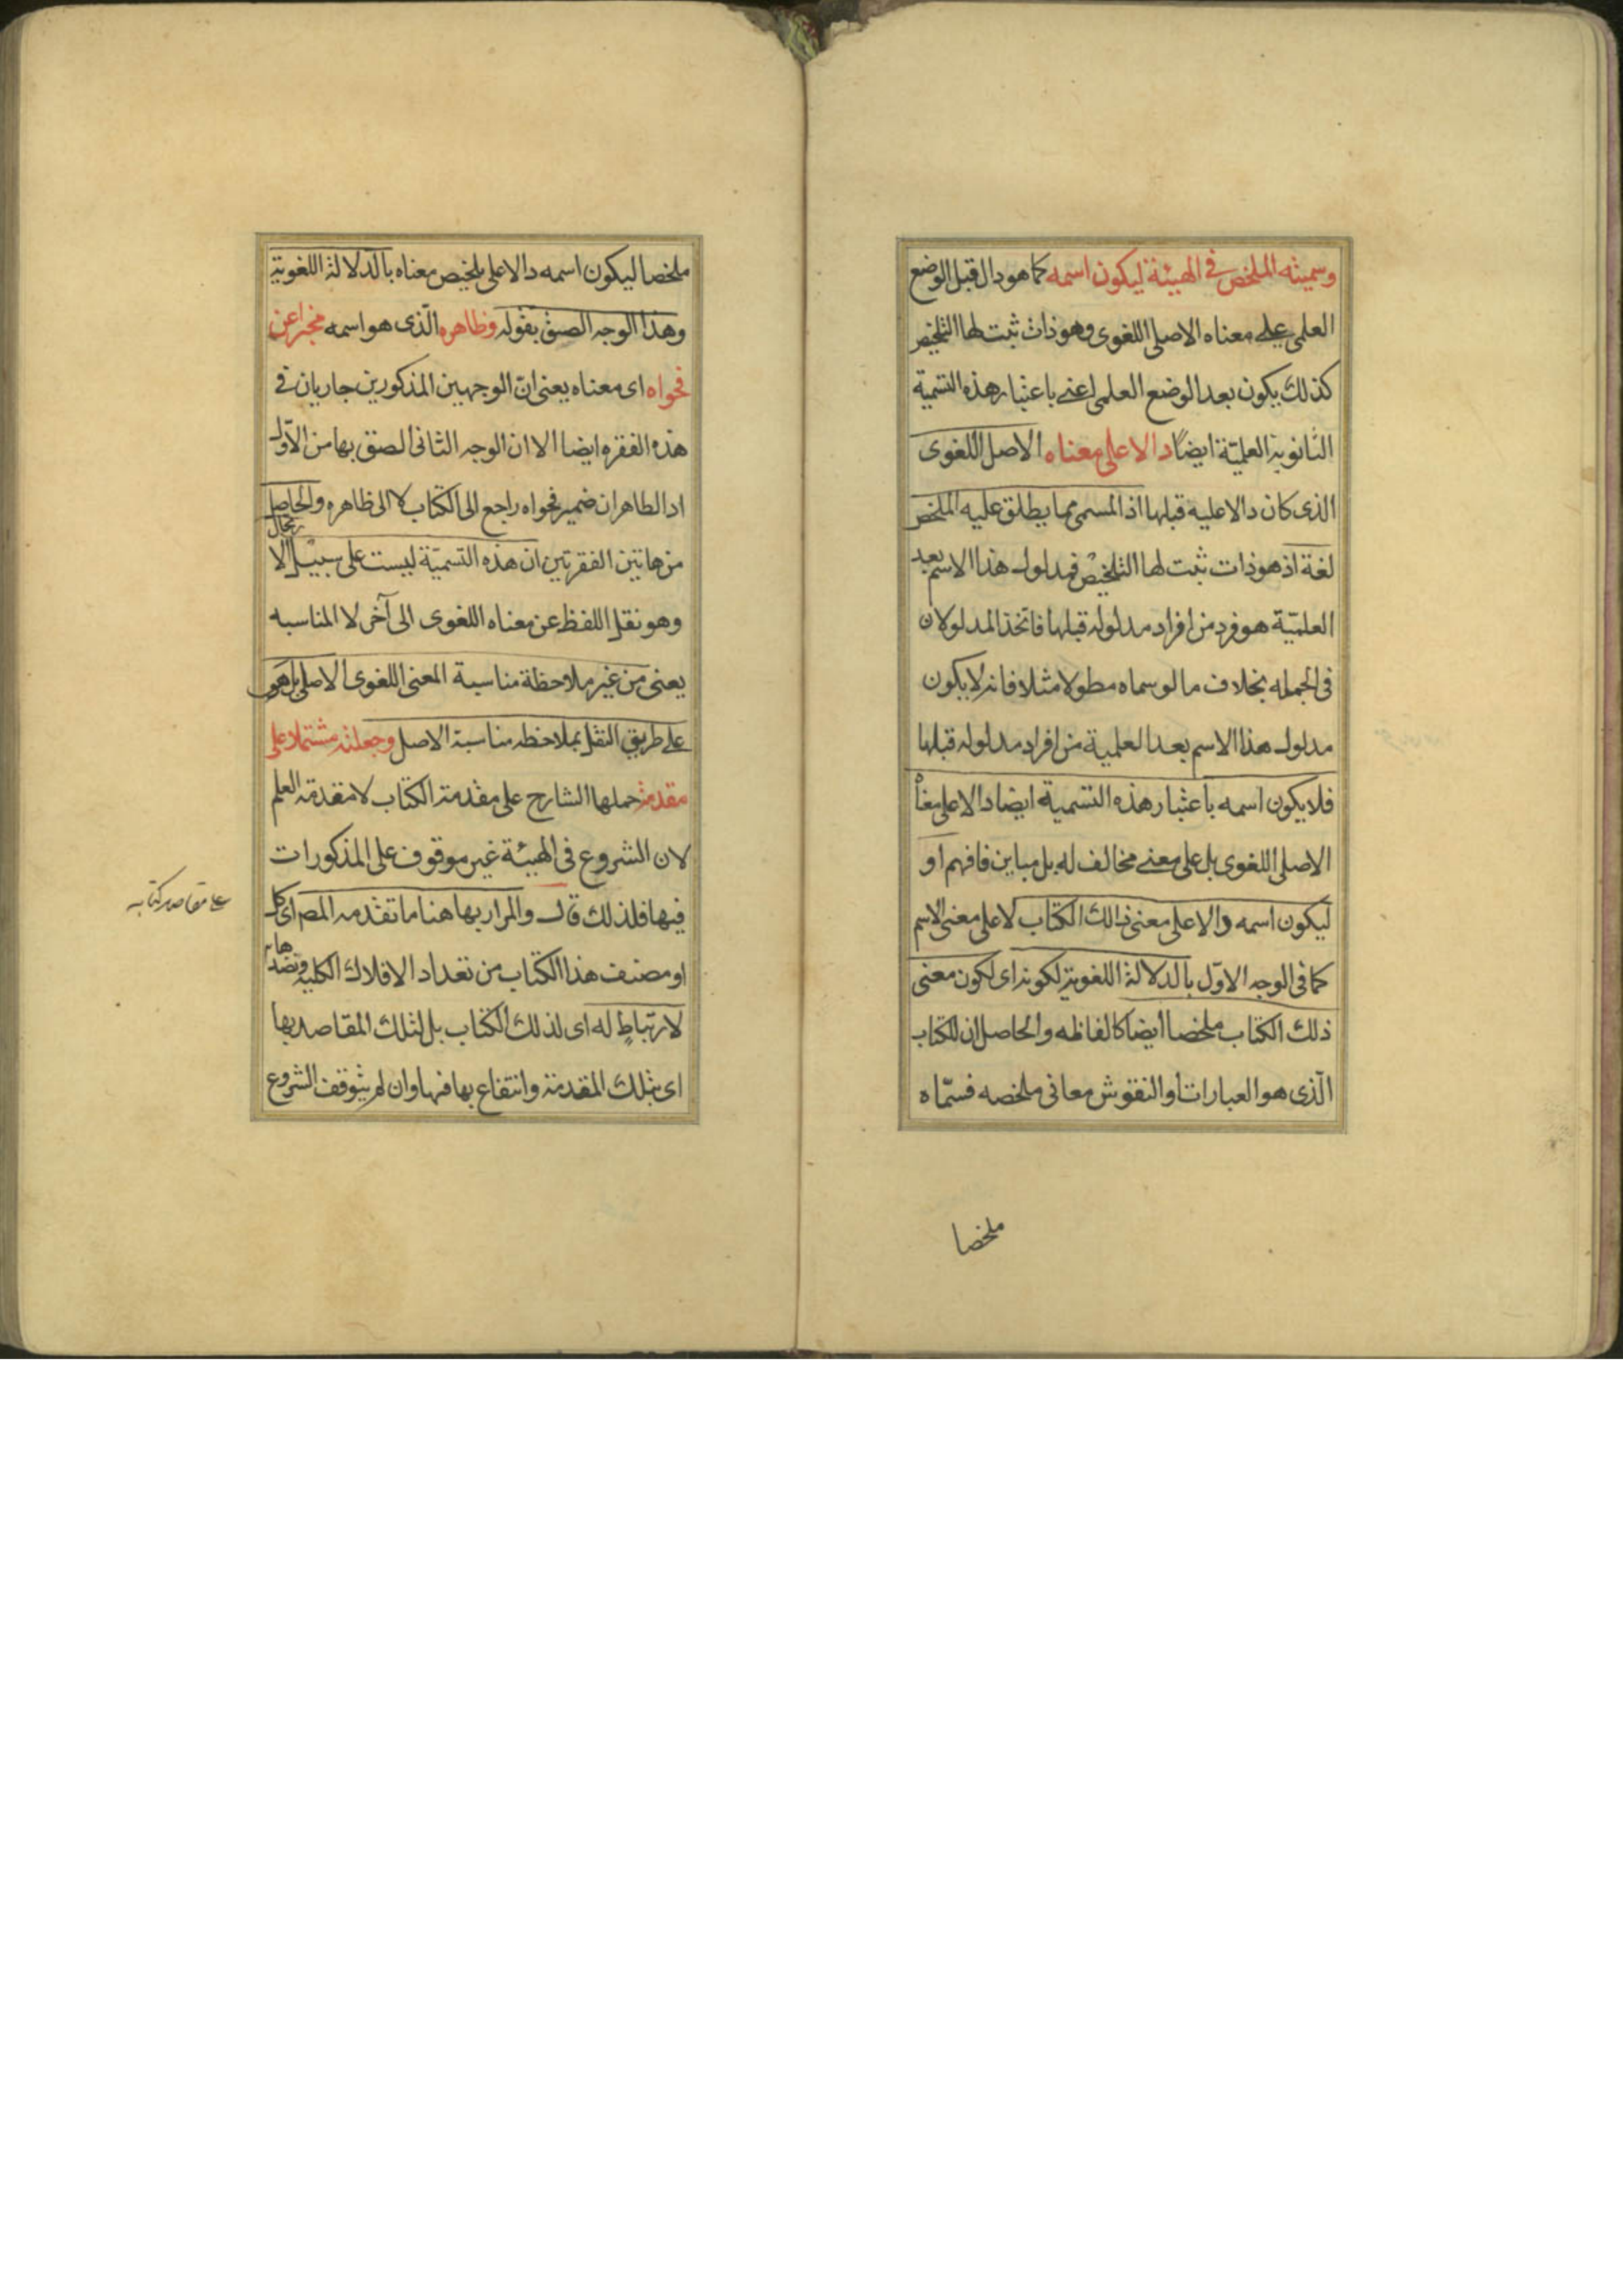 وسميته الملخص في الهيئة ليكون اسمه كما هو دال قبل الوضع
العلمى على معناه الاصلى اللغوى وهو ذات ثبت لها التلخيص
كذلك يكون بعد الوضع العلمى اعنى باعتبار هذه التسمية
الثانوية العلميّة ايضًا دالا على معناه الاصل اللغوى
الذى كان دالا عليه قبلها اذ المسمى مما يطلق عليه الملخص
لغة اذ هو ذات ثبت لها التلخيص فمدلول هذا الاسم بعد
العلميّة هو فرد من افراد مدلوله قبلها فاتخذ المدلولان
فى الجمله بخلاف ما لو سماه مطولا مثلا فانه لا يكون
مدلول هذا الاسم بعد العلمية من افراد مدلوله قبلها
فلا يكون اسمه باعتبار هذه التسمية ايضا دالا على معناه
الاصلى اللغوى بل على معنى مخالف له بل مباين فافهم او
ليكون اسمه دالا على معنى ذالك الكتاب لا على معنى الاسم
كما فى الوجه الاوّل بالدلالة اللغوية لكونه اى لكون معنى
ذلك الكتاب ملخصا ايضا كالفاظه والحاصل ان للكتاب
الّذى هو العبارات او النقوش معانى ملخصه فسمّاه
ملخصا
ملخصا ليكون اسمه دالا على تلخيص معناه بالدلالة اللغوية
وهذا الوجه الصق بقوله وظاهره الّذى هو اسمه مخبرا عن
فحواه اى معناه يعنى انّ الوجهين المذكورين جاريان فى
هذه الفقره ايضا الا ان الوجه الثانى الصق بها من الاوّل
اد الظاهر ان ضمير فحواه راجع الى الكتاب لا الى ظاهره والحاصل
من هاتين الفقرتين ان هذه التسميّة ليست على سبيل الارتجال
وهو نقل اللفظ عن معناه اللغوى الى آخر لا المناسبه
يعنى من غير ملاحظة مناسبة المعنى اللغوى الاصلى بل هو
على طريق النقل بملاحظه مناسبة الاصل وجعلته مشتملا على
مقدمة حملها الشارح على مقدمة الكتاب لا مقدمة العلم
لان الشروع فى الهيئة غير موقوف على المذكورات
فيها فلذلك قال والمراد بها هنا ما تقدمه المص اى كل
او مصنف هذا الكتاب من تعداد الافلاك الكليه ونضدها
على مقاصد كتابه
لارتباطٍ له اى لذلك الكتاب بل لتلك المقاصد بها
اى بتلك المقدمة وانتفاع بها فيها وان لم يتوقف الشروع